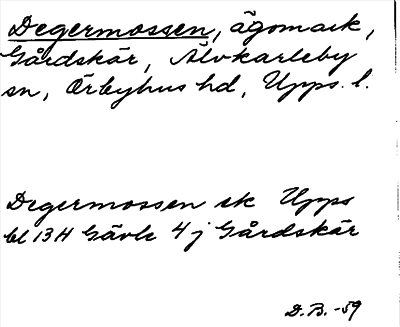 Degermossen, ägomark,
Gårdskär, Älvkarleby
sn, Örbyhus hd, Upps. l.
Degermossen ek Upps
bl 13H Gävle 4 j Gårdskär
D.B. -59